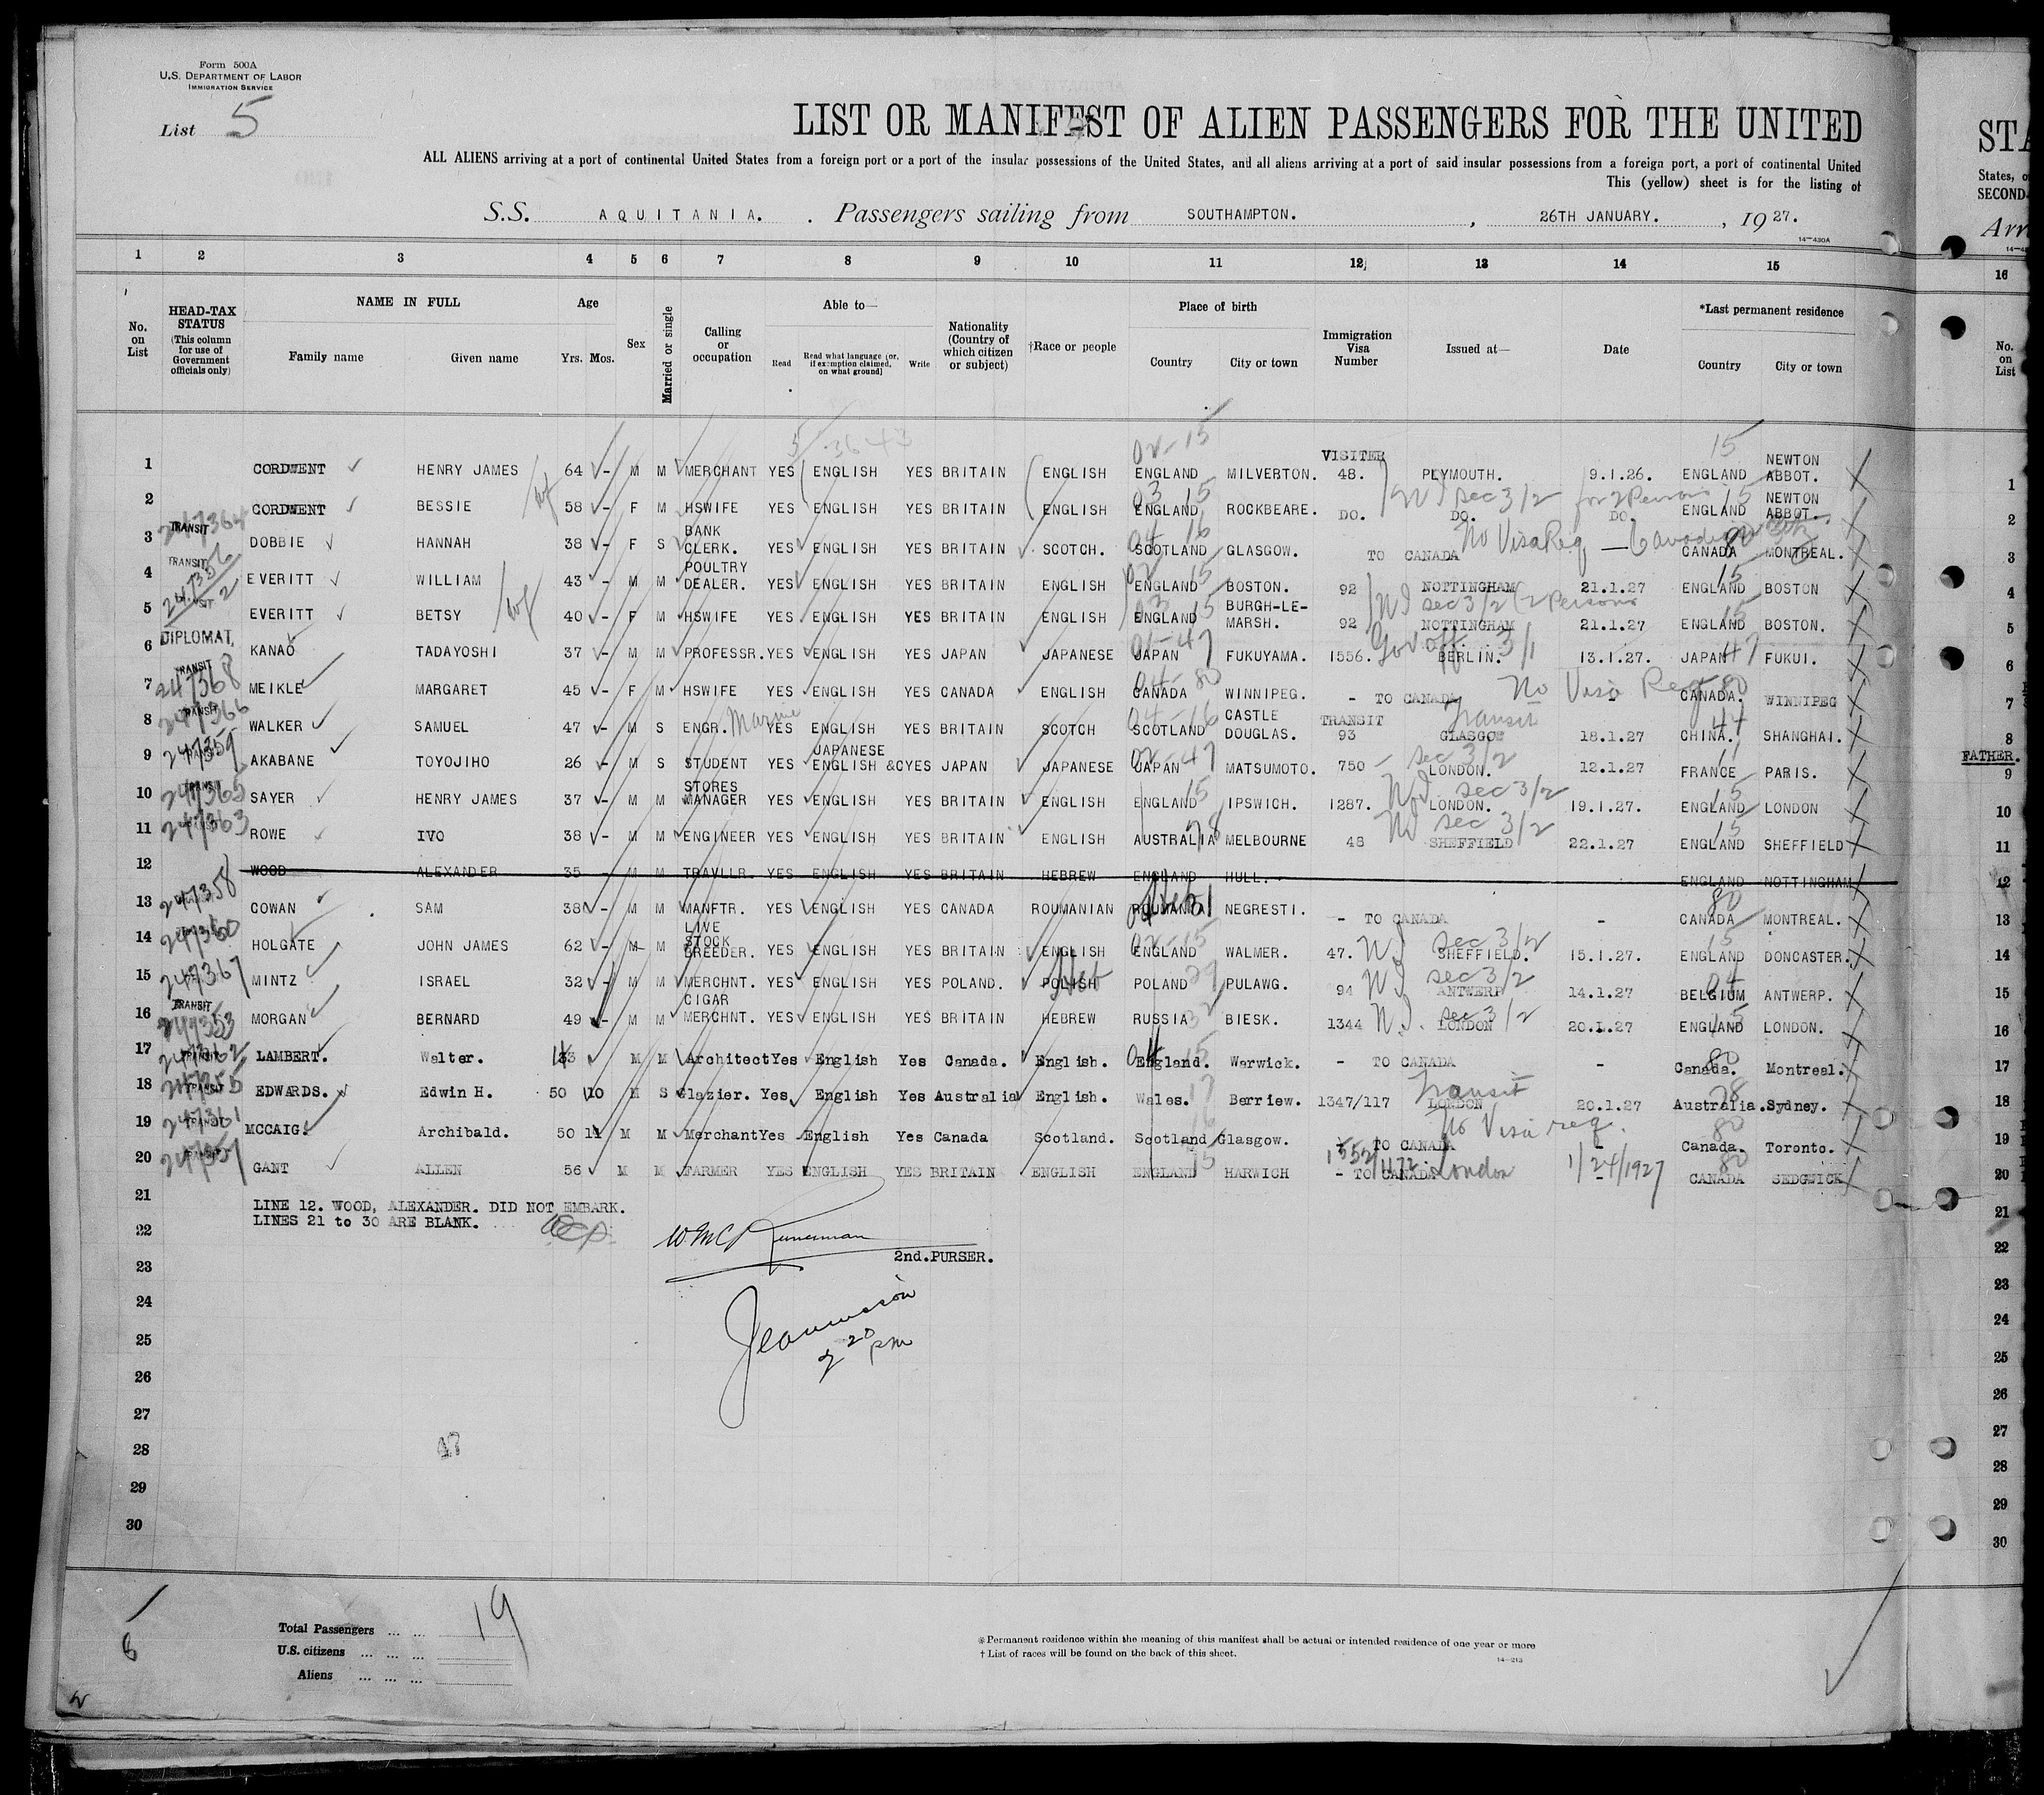 Form 500A
U.S. DEPARTMENT OF LABOR
IMMIGRATION SERVICE
List 5
LIST OR MANIFEST OF ALIEN PASSENGERS FOR THE UNITED
ALL ALIENS arriving at a port of continental United States from a foreign port or a port of the insular possessions of the United States, and all aliens arriving at a port of said insular possessions from a foreign port, a port of continental United
This (yellow) sheet is for the listing of
S.S. AQUITANIA. Passengers sailing from SOUTHAMPTON. , 26TH JANUARY. , 1927.
14-430A
1 2 3 4 5 6 7 8 9 10 11 12 13 14 15
No. on List HEAD-TAX STATUS (This column for use of Government officials only) NAME IN FULL Family name Given name Age Yrs. Mos. Sex Married or single Calling or occupation Able to— Read Read what language (or, if exemption claimed, on what ground) Write Nationality (Country of which citizen or subject) †Race or people Place of birth Country City or town Immigration Visa Number Issued at— Date *Last permanent residence Country City or town
1 CORDWENT HENRY JAMES 64 - M M MERCHANT YES ENGLISH YES BRITAIN ENGLISH ENGLAND MILVERTON. VISITER 48. PLYMOUTH. 9.1.26. ENGLAND NEWTON ABBOT.
2 CORDWENT BESSIE wf 58 - F M HSWIFE YES ENGLISH YES BRITAIN ENGLISH ENGLAND ROCKBEARE. DO. DO. DO. ENGLAND NEWTON ABBOT.
sec 3/2 for 2 Persons
3 247364 TRANSIT DOBBIE HANNAH 38 - F S BANK CLERK. YES ENGLISH YES BRITAIN SCOTCH. SCOTLAND GLASGOW. TO CANADA No Visa Req CANADA MONTREAL.
4 TRANSIT EVERITT WILLIAM 43 - M M POULTRY DEALER. YES ENGLISH YES BRITAIN ENGLISH ENGLAND BOSTON. 92 NOTTINGHAM 21.1.27 ENGLAND BOSTON
5 EVERITT BETSY wf 40 - F M HSWIFE YES ENGLISH YES BRITAIN ENGLISH ENGLAND BURGH-LE-MARSH. 92 sec 3/2 (2 Persons NOTTINGHAM 21.1.27 ENGLAND BOSTON.
6 DIPLOMAT, KANAO TADAYOSHI 37 - M M PROFESSR. YES ENGLISH YES JAPAN JAPANESE JAPAN FUKUYAMA. 1556. Gov. off. 3/1 BERLIN. 13.1.27. JAPAN FUKUI.
7 TRANSIT 247368 MEIKLE MARGARET 45 - F M HSWIFE YES ENGLISH YES CANADA ENGLISH CANADA WINNIPEG. - TO CANADA No Visa Req CANADA. WINNIPEG
8 247366 WALKER SAMUEL 47 - M S ENGR. Marine YES ENGLISH YES BRITAIN SCOTCH SCOTLAND CASTLE DOUGLAS. TRANSIT 93 Transit GLASGOW 18.1.27 CHINA. SHANGHAI.
9 247359 AKABANE TOYOJIHO 26 - M S STUDENT YES JAPANESE ENGLISH &C YES JAPAN JAPANESE JAPAN MATSUMOTO. 750 sec 3/2 LONDON. 12.1.27 FRANCE PARIS.
10 247365 SAYER HENRY JAMES 37 - M M STORES MANAGER YES ENGLISH YES BRITAIN ENGLISH ENGLAND IPSWICH. 1287. sec 3/2 LONDON. 19.1.27. ENGLAND LONDON
11 247363 ROWE IVO 38 - M M ENGINEER YES ENGLISH YES BRITAIN ENGLISH AUSTRALIA MELBOURNE 48 sec 3/2 SHEFFIELD 22.1.27 ENGLAND SHEFFIELD
12 WOOD ALEXANDER 35 - M M TRAVLLR. YES ENGLISH YES BRITAIN HEBREW ENGLAND HULL. ENGLAND NOTTINGHAM
13 247358 COWAN SAM 38 - M M MANFTR. YES ENGLISH YES CANADA ROUMANIAN ROUMANIA NEGRESTI. - TO CANADA - CANADA MONTREAL.
14 247360 HOLGATE JOHN JAMES 62 - M M LIVE STOCK BREEDER. YES ENGLISH YES BRITAIN ENGLISH ENGLAND WALMER. 47. sec 3/2 SHEFFIELD. 15.1.27. ENGLAND DONCASTER.
15 247367 MINTZ ISRAEL 32 - M M MERCHNT. YES ENGLISH YES POLAND. POLISH Heb POLAND PULAWG. 94 sec 3/2 ANTWERP 14.1.27 BELGIUM ANTWERP.
16 TRANSIT 247353 MORGAN BERNARD 49 - M M CIGAR MERCHNT. YES ENGLISH YES BRITAIN HEBREW RUSSIA BIESK. 1344 sec 3/2 LONDON 20.1.27 ENGLAND LONDON.
17 247362 LAMBERT. Walter. M M Architect Yes English Yes Canada. English. England. Warwick. - TO CANADA - Canada. Montreal.
18 TRANSIT EDWARDS. Edwin H. 50 10 M S Glazier. Yes English Yes Australia English. Wales. Berriew. 1347/117 Transit LONDON 20.1.27 Australia. Sydney.
19 247361 MCCAIG. Archibald. 50 11 M M Merchant Yes English Yes Canada Scotland. Scotland Glasgow. - TO CANADA No Visa req. - Canada. Toronto.
20 GANT ALLEN 56 M M FARMER YES ENGLISH YES BRITAIN ENGLISH ENGLAND HARWICH - TO CANADA London 1/24/1927 CANADA SEDGWICK
21 LINE 12. WOOD, ALEXANDER. DID NOT EMBARK.
LINES 21 to 30 ARE BLANK.
22
2nd. PURSER.
23
24
25
2 20 pm
26
27
28
29
30
Total Passengers ... ... 19
U.S. citizens ... ... ...
Aliens ... ... ...
*Permanent residence within the meaning of this manifest shall be actual or intended residence of one year or more
† List of races will be found on the back of this sheet.
14-213
STA
States, o
SECOND-
Arr
16
No. on List
1
2
3
4
5
6
7
8
FATHER.
9
10
11
12
13
14
15
16
17
18
19
20
21
22
23
24
25
26
27
28
29
30